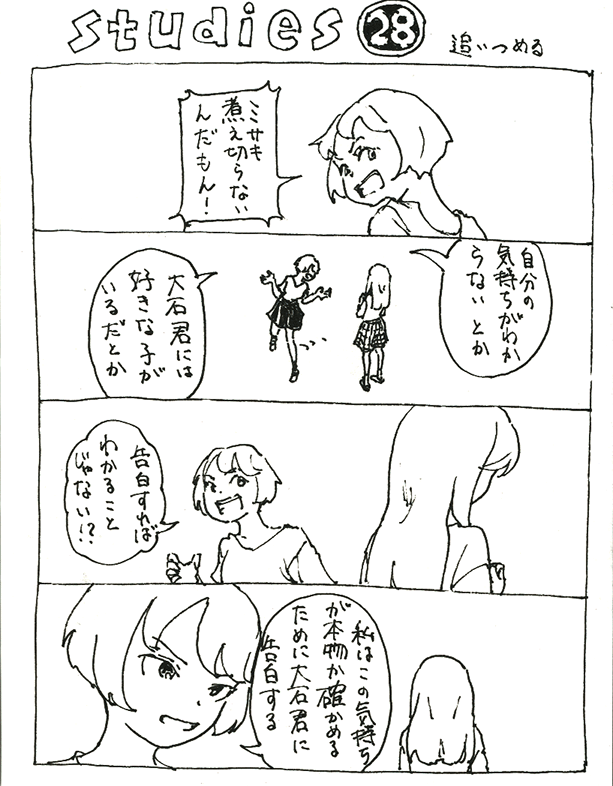 studies 28
追いつめる
ミサキ
煮え切らない
んだもん!
自分の
気持ちがわか
らないとか
大石君には
好きな子が
いるだとか
告白すれば
わかること
じゃない!?
私はこの気持ち
が本物か確かめる
ために大石君に
告白する